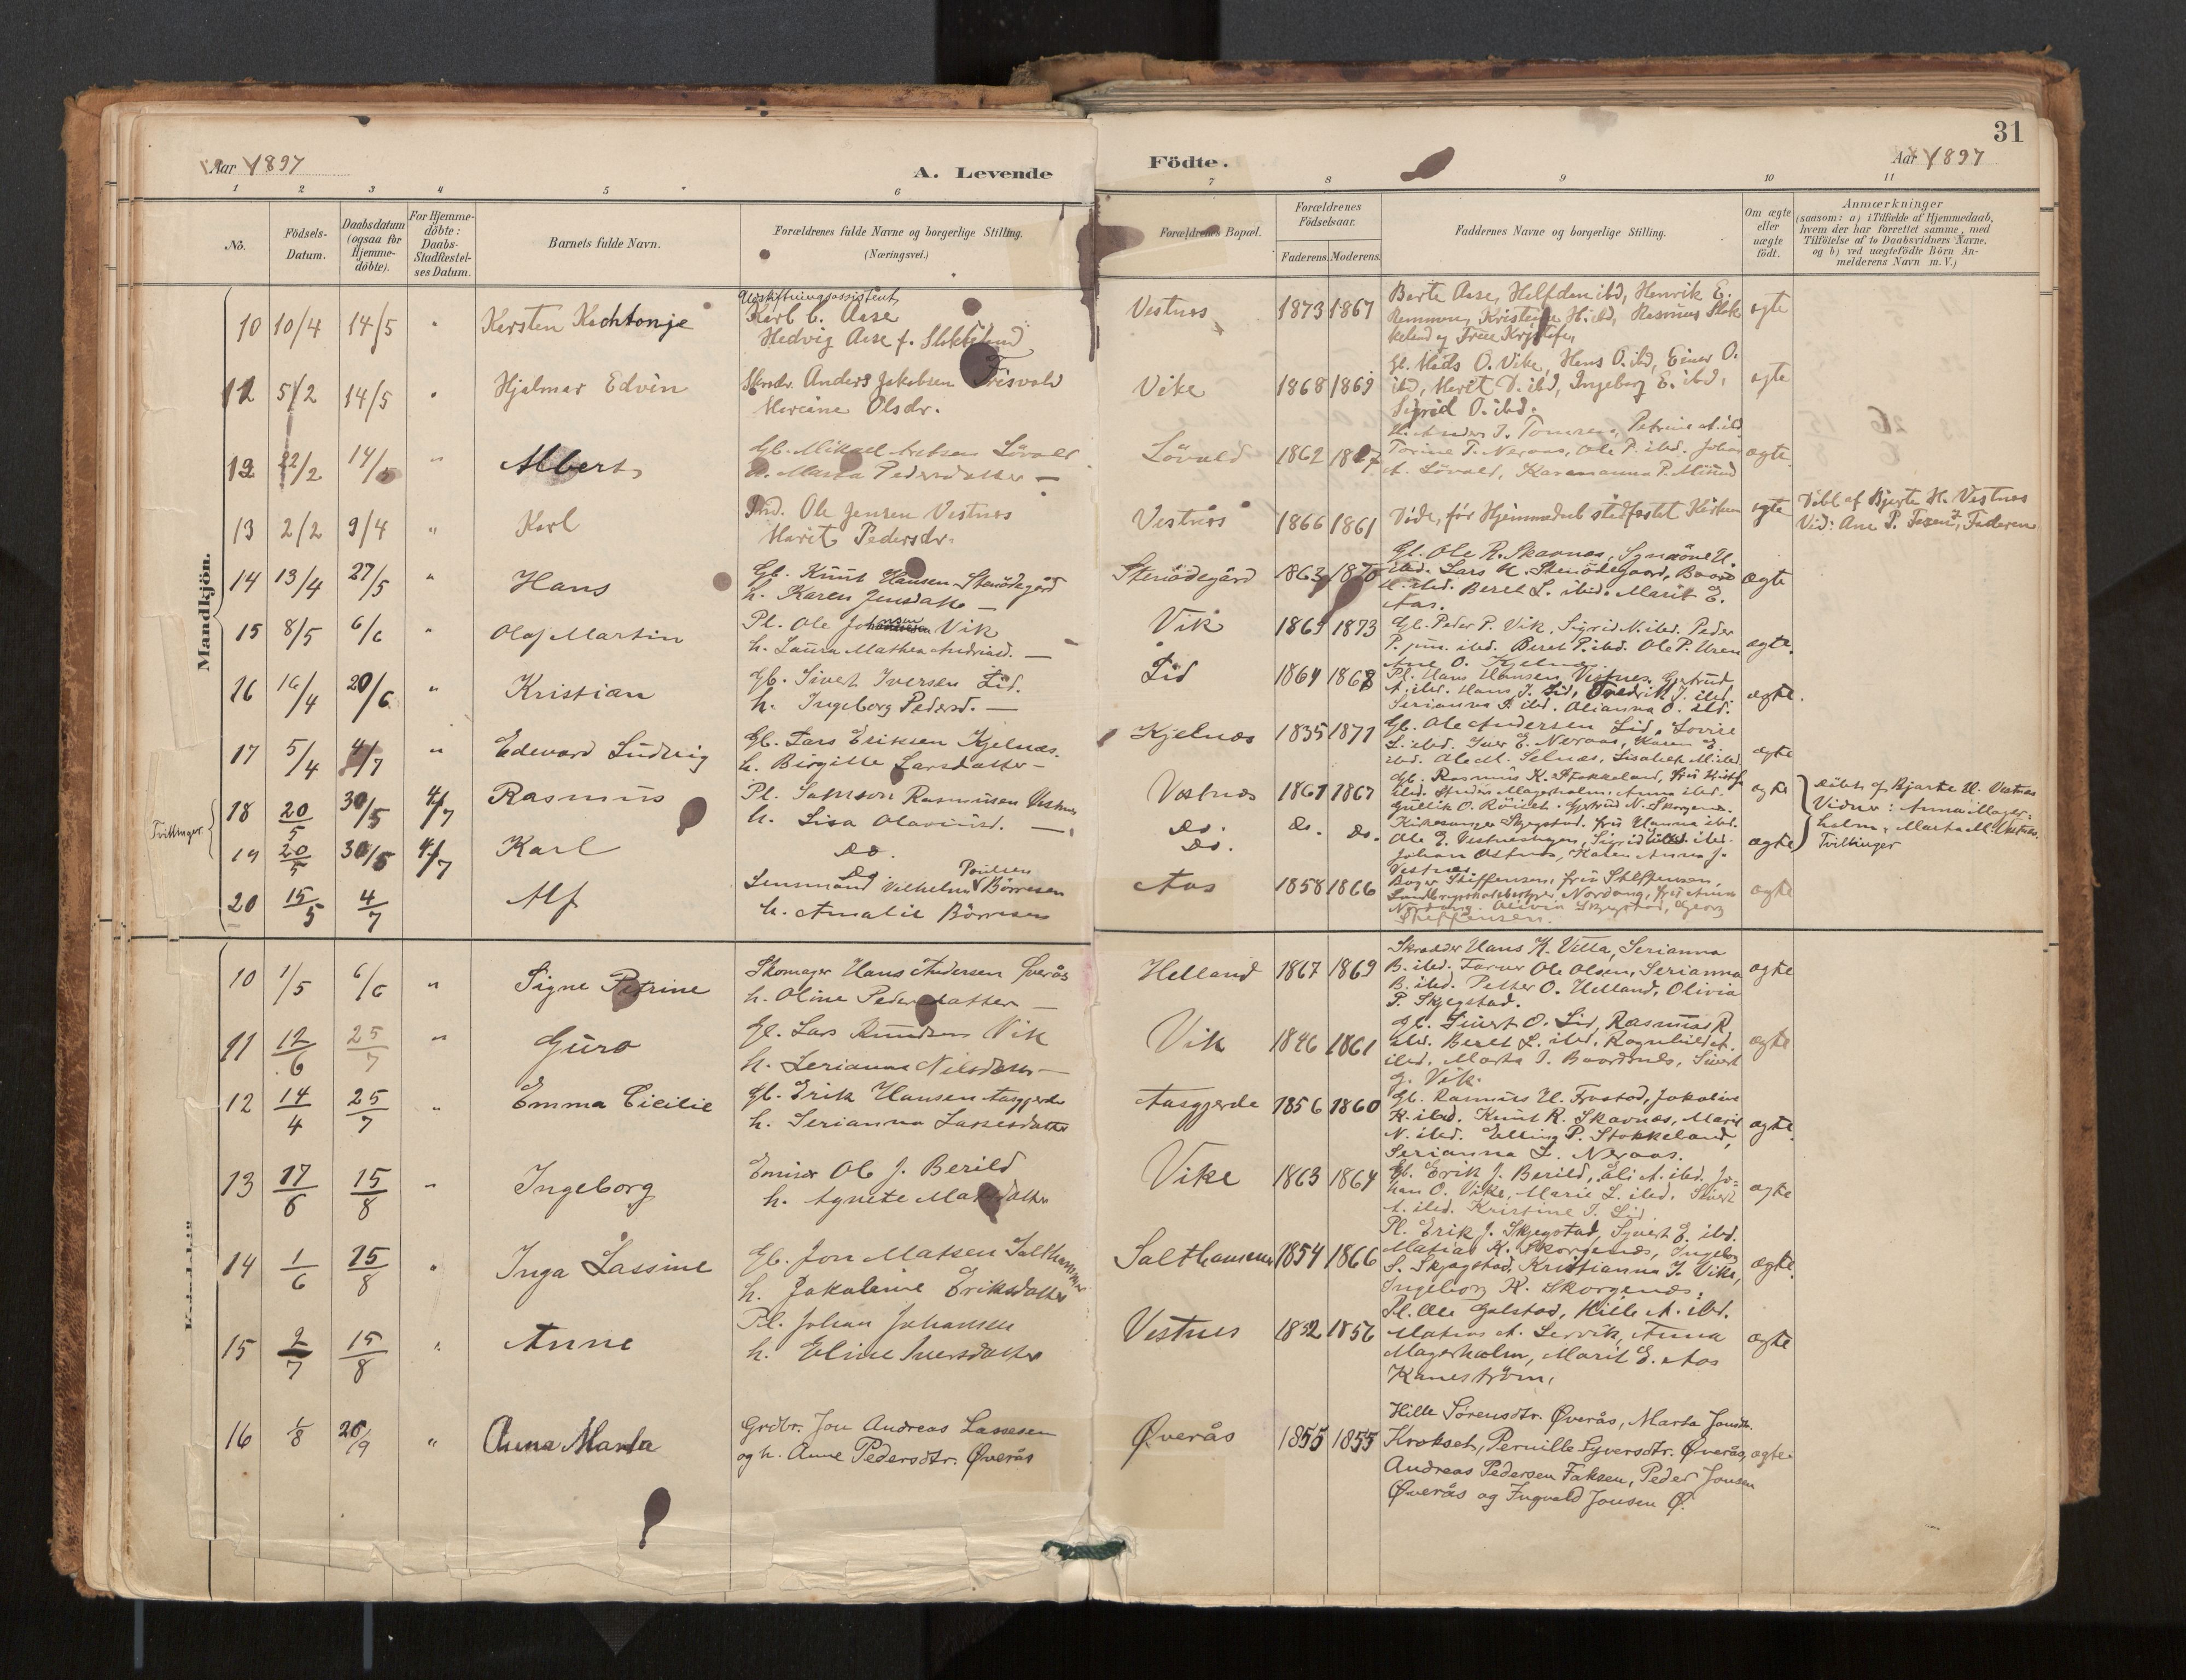 31
Aar 1897
A. Levende
Födte.
Aar 1897
1 2 3 4 5 6 7 8 9 10 11
No.
Födsels-Datum.
Daabsdatum (ogsaa for Hjemme-döbte).
For Hjemme-döbte: Daabs-Stadfæstel-ses Datum.
Barnets fulde Navn.
Forældrenes fulde Navne og borgerlige Stilling. (Næringsvei.)
Forældrenes Bopæl.
Forældrenes Födselsaar.
Faderens. Moderens.
Faddernes Navne og borgerlige Stilling.
Om ægte eller uægte födt.
Anmærkninger
(saasom: a) i Tilfælde af Hjemmedaab,
hvem der har forrettet samme, med
Tilföielse af to Daabsvidners Navne,
og b) ved uægtefödte Börn An-
melderens Navn m. V.)
Mandkjön.
10 10/4 14/5 " Kersten
Karl C. Aase
Hedvig Aase f.
Vestnes 1873 1867
Berte Aase, ibd, Henrik E.
Rasmus Stok
keland og
ægte
11 5/2 14/5 " Hjalmar Edvin
Anders Jakobsen Frisvold
Olsdr.
Vike 1868 1869
Gb. Mads O. Vike, Hans O. ibd, Einer O.
ibd, Marit D. ibd, Ingeborg E. ibd,
Sigrid O. ibd.
ægte
12 22/2 14/5 " Albert
Gb. Mikael Løvold
h. Marta Pedersdatter —
Løvold 1862
Petrine A. ibd
Torine T. Neraas, Ole P. ibd. Johan
A. Løvold, P.
ægte
13 2/2 9/4 " Karl
Ind. Ole Jensen Vestnes
Marit Pedersdr.
Vestnes 1866 1861
Døde, før Hjemmedaab stadfæstet Kirken
ægte
Døbt af Bjerte H. Vestnes
Vid: Ane P. Faderen
14 13/4 27/5 " Hans
Gb. Knut Hansen Stenødegård
h. Karen Jensdatter —
Stenødegård 1863 1870
Gb. Ole R. Skavnes, H.
ibd. Lars K. Stenødegaard,
ibd. Beret L. ibid. Marit E.
Aas.
ægte
15 8/5 6/6 " Olaf Martin
Pl. Ole Vik
h. Laura Mathea
Vik 1869 1873
Gb. Peder P. Vik, Sigrid N. ibd. Peder
P. jun. ibd. Beret P. ibd. Ole P. Uren
Ane O. Kjelnes.
ægte
16 16/4 20/6 " Kristian
Gb. Sivert Iversen Lid.
h. Ingeborg Pedersd. —
Lid 1864 1868
Pl. Hans Hansen Vestnes. Gjertrud
A. ibd. Hans J. Lid, Fredrik J. ibd.
Serianna P. ibd. Olianna O. ibd.
ægte.
17 5/4 4/7 " Edevard Ludvig
Gb. Lars Eriksen Kjelnæs.
h. Birgitte Larsdatter —
Kjelnæs 1835 1871
Gb. Ole Andersen Lid, Lovise
L. ibd. Iver E. Neraas, Karen E.
ibd. Ole M. Selnæs, Lisabet M. ibd.
ægte
Tvillinger
18 20/5 30/5 4/7 Rasmus
Pl. Samson Rasmusen Vestnes
h. Lisa Olavsd. —
Vestnes 1867 1867
Gb. Rasmus K. Stokkeland,
ibd. Anders Magerholm, Anna ibd.
Gullik O. Gjertrud N. Skorgenes.
ægte
Døbt af Bjarte H. Vestnes
Vidner: Anna Mager-
holm, Marta M. Vestnes.
Tvillinger
19 20/5 30/5 4/7 Karl
Do.
Do.
Do. Do.
Do. Do.
Kirkesanger Skjegstad, fru Hanna ibd.
Ole E. Sigrid ibd.
Johan Østnes, Karen Anna J.
Vestnes
ægte
20 15/5 4/7 Alf
Lensmand Vilhelm Poulsen Börresen
h. Amalie Börresen
Aas 1858 1866
Steffensen, fru Steffensen,
Nordang, fru Anna
Nordang. Olivia Skjegstad, Georg
Steffensen.
ægte
10 1/5 6/6 " Signe Petrine
Skomager Hans Andersen Øverås
h. Oline Pedersdatter —
Helland 1867 1869
Skrædder Hans K. Villa, Serianna
B. ibd. Farver Ole Olsen, Serianna
B. ibd. Petter O. Helland, Olivia
P. Skjegstad.
ægte
11 12/6 25/7 " Guro
Gb. Lars Knudsen Vik
h. Serianna Nilsdatter —
Vik 1846 1861
Gb. Sivert O. Lid, Rasmus R.
ibd. Beret L. ibd, Ragnhild A.
ibd, Marta I. Baardsnes, Sivert
G. Vik.
ægte
12 14/4 25/7 " Emma Cicilie
Gb. Erik Hansen Aasgjerde
h. Serianna Lassesdatter
Aasgjerde 1856 1860
Gb. Rasmus H. Frostad, Jakobine
K. ibd. Knut R. Skavnæs, Marit
N. ibd. Elling P. Stokkeland,
Serianna L. Neraas.
ægte.
13 17/6 15/8 " Ingeborg
Ole J. Berild
h. Agnete Matsdatter
Vike 1863 1864
Gb. Erik J. Berild, Eli A. ibd. Jo-
han O. Vike, Marie L. ibd. Sivert
A. ibd. Kristine T. Lid
ægte
14 1/6 15/8 " Inga Lassine
Gb. Jon Matsen Salthammer
h. Jakobine Eriksdatter
Salthammer 1854 1866
Pl. Erik J. Skjegstad, Synert E. ibd.
Matias K. Skorgenæs, Ingebor
S. Skjegstad, Kristianna J. Vike,
Ingeborg K. Skorgenæs.
ægte.
15 2/7 15/8 " Anne
Pl. Johan Johansen
h. Eline Iversdatter
Vestnes 1852 1856
Pl. Ole Galstad, Hille A. ibd.
Matias A. Lervik, Anna
Magerholm, Marit E. Aas
Kanestrøm.
ægte
16 1/8 26/9 " Anna Marta
Grdbr. Jon Andreas Lassesen
og h. Anne Pedersdtr. Øverås
Øverås 1855 1855
Hille Sørensdtr. Øverås, Marta Jonsdtr.
Krokset, Pernille Syversdtr. Øverås,
Andreas Pedersen Faksen, Peder Jonsen
Øverås og Ingvald Jonsen Ø.
ægte